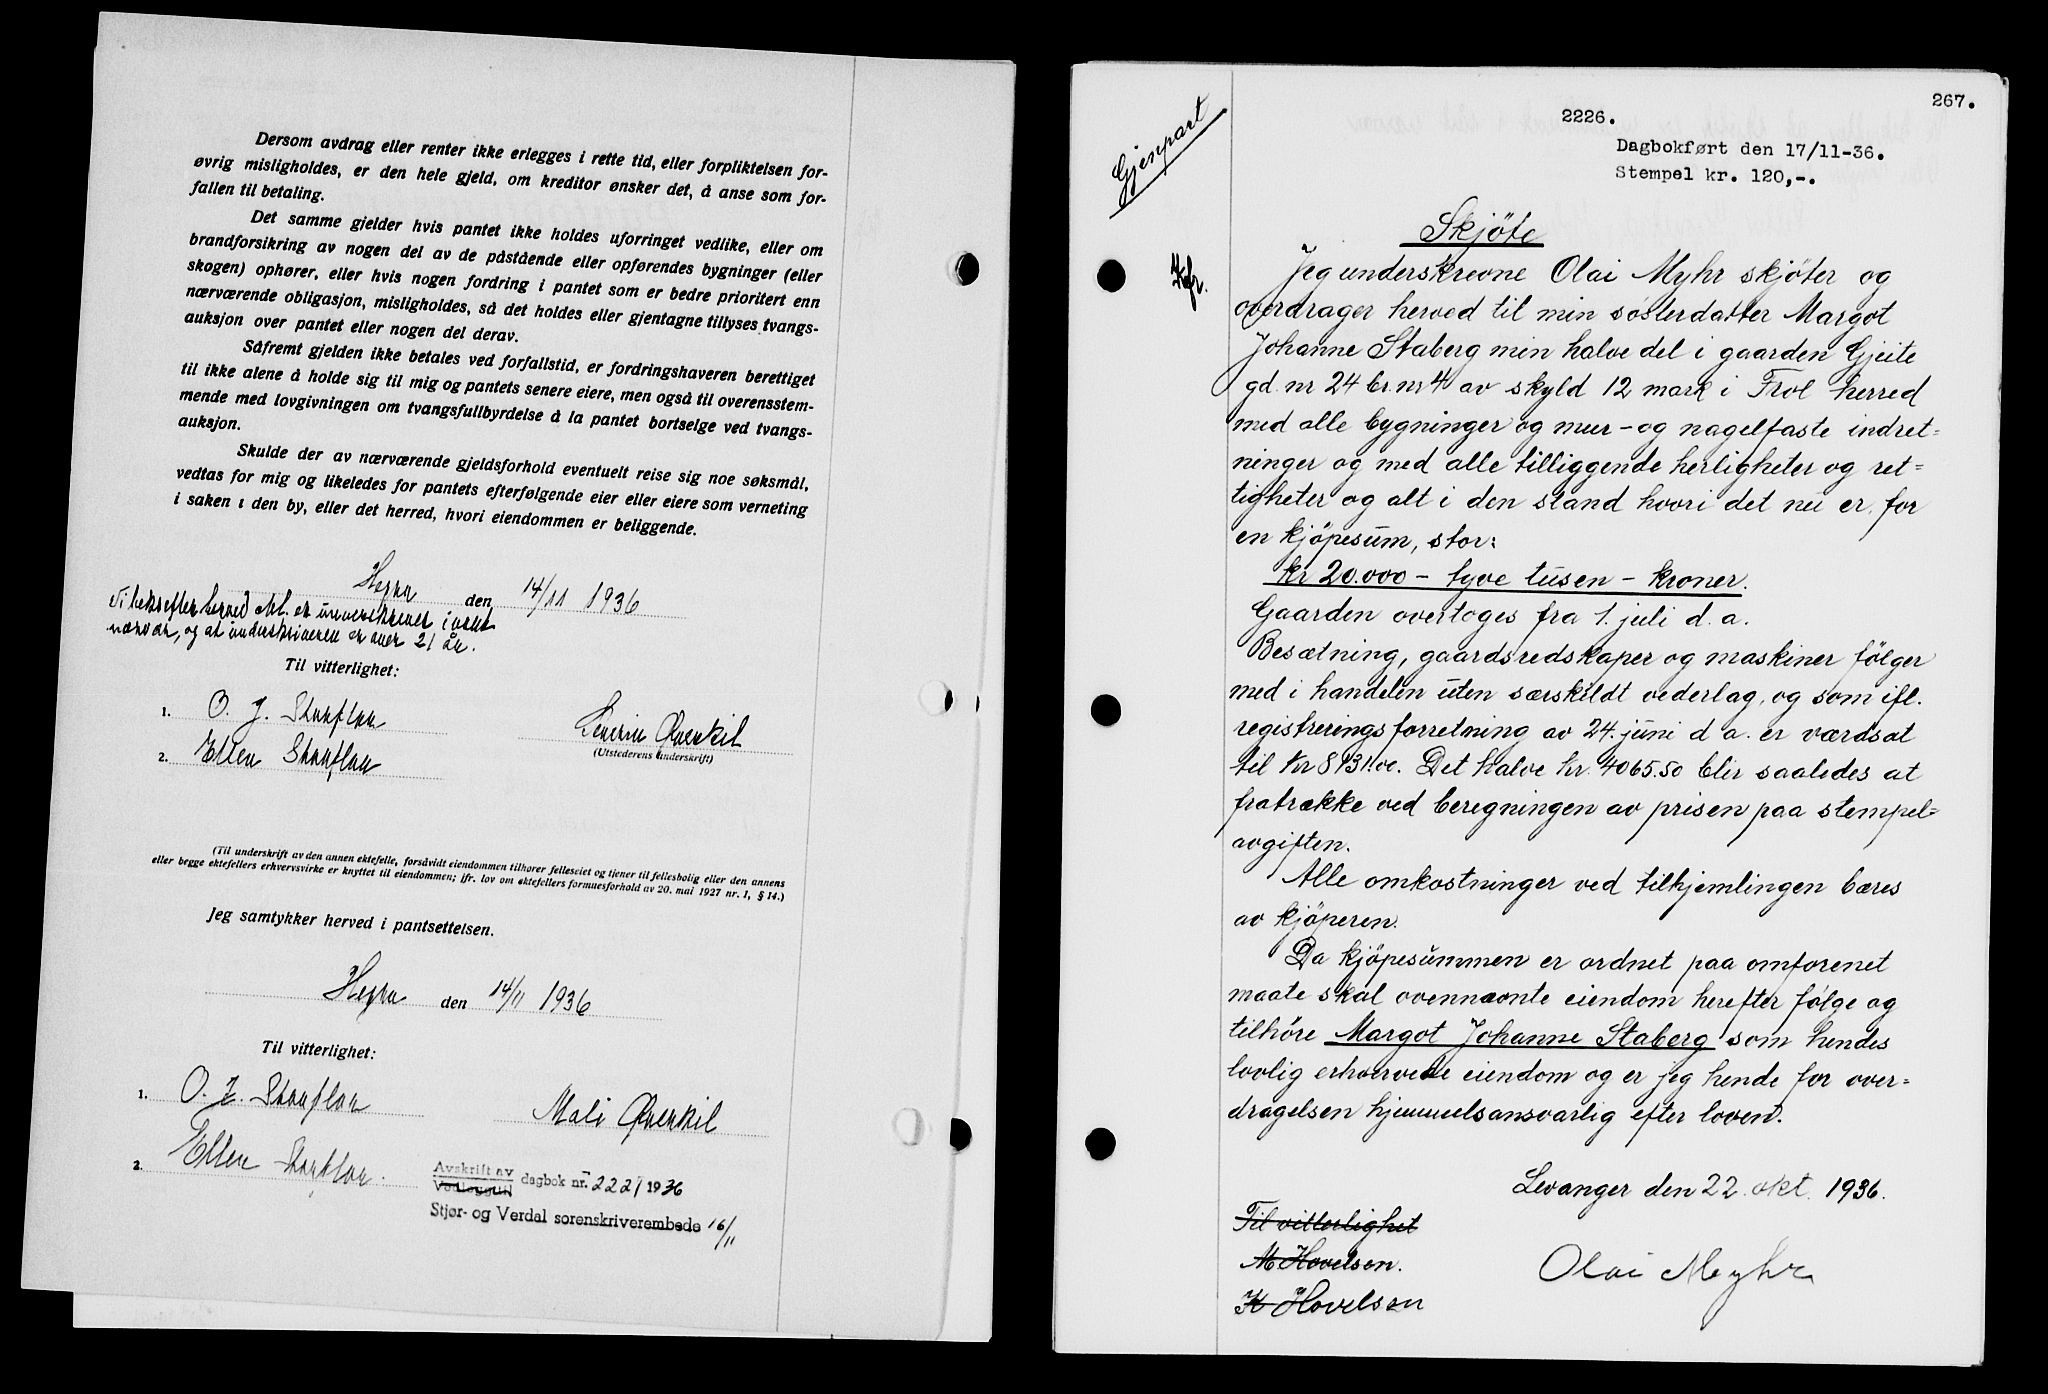 Dersom avdrag eller renter ikke erlegges i rette tid, eller forpliktelsen for-
øvrig misligholdes, er den hele gjeld, om kreditor ønsker det, å anse som for-
fallen til betaling.
Det samme gjelder hvis pantet ikke holdes uforringet vedlike, eller om
brandforsikring av nogen del av de påstående eller opførendes bygninger (eller
skogen) ophører, eller hvis nogen fordring i pantet som er bedre prioritert enn
nærværende obligasjon, misligholdes, så det holdes eller gjentagne tillyses tvangs-
auksjon over pantet eller nogen del derav.
Såfremt gjelden ikke betales ved forfallstid, er fordringshaveren berettiget
til ikke alene å holde sig til mig og pantets senere eiere, men også til overensstem-
mende med lovgivningen om tvangsfullbyrdelse å la pantet bortselge ved tvangs-
auksjon.
Skulde der av nærværende gjeldsforhold eventuelt reise sig noe søksmål,
vedtas for mig og likeledes for pantets efterfølgende eier eller eiere som verneting
i saken i den by, eller det herred, hvori eiendommen er beliggende.
Hegra den 14/11 1936
Vi bekrefter herved at er underskrevet i vårt
nærvær, og at underskriveren er over 21 år.
Til vitterlighet:
1. O. J.
2. Ellen
(Utstederens underskrift)
(Til underskrift av den annen ektefelle, forsåvidt eiendommen tilhører felleseiet og tjener til fellesbolig eller den annens
eller begge ektefellers erhvervsvirke er knyttet til eiendommen; jfr. lov om ektefellers formuesforhold av 20. mai 1927 nr. 1, § 14.)
Jeg samtykker herved i pantsettelsen.
Hegra den 14/11 1936
Til vitterlighet:
1. O. J.
Mali
2. Ellen
Avskrift av
Vedlegg til dagbok nr. 2221 1936
Stjør- og Verdal sorenskriverembede 16/11
267.
2226.
Dagbokført den 17/11-36.
Stempel kr. 120,-.
Gjenpart
Skjöte
Jeg underskrevne Olai Myhr skjöter og
overdrager herved til min sösterdatter Margot
Johanne Staberg min halve del i gaarden Gjeite
gd. nr 24 br. nr 4 av skyld 12 mark i Frol herred
med alle bygninger og mur- og nagelfaste indret=
ninger og med alle tilliggende herligheter og ret=
tigheter og alt i den stand hvori det nu er, for
en kjöpesum, stor:
kr 20.000 - tyve tusen - kroner.
Gaarden overtoges fra 1. juli d. a.
Besætning, gaardsredskaper og maskiner fölger
med i handelen uten særskildt vederlag, og som ifl.
registreringsforretning av 24. juni d a. er værdsat
til kr 8131.oo. Det halve kr. 4065.50 blir saaledes at
fratrække ved beregningen av prisen paa stempel=
avgiften.
Alle omkostninger ved tilhjemlingen bæres
av kjöperen.
Da kjöpesummen er ordnet paa omforenet
maate skal ovennævnte eiendom herefter fölge og
tilhöre Margot Johanne Staberg som hendes
lovlig erhvervede eiendom og er jeg hende for over=
dragelsen hjemmelsansvarlig efter loven.
Levanger den 22. okt. 1936.
Til vitterlighet
M Hovelsen.
K Hovelsen
Olai Myhr